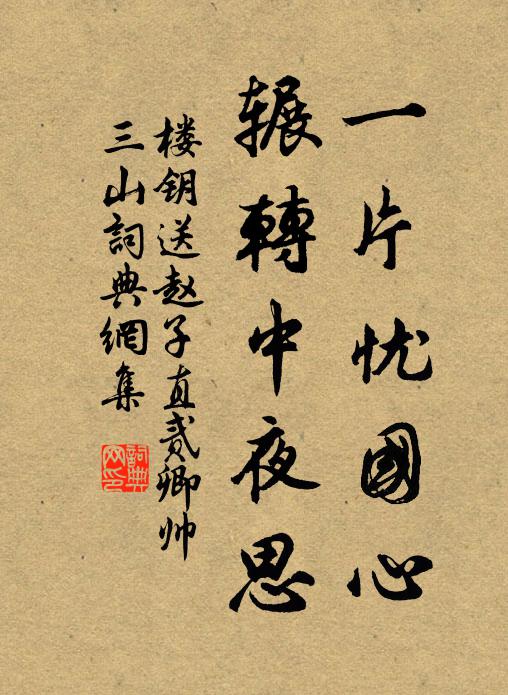 一片忧國心
辗轉中夜思
楼钥送赵子直贰卿帅
三山詞典網集
詞典網印